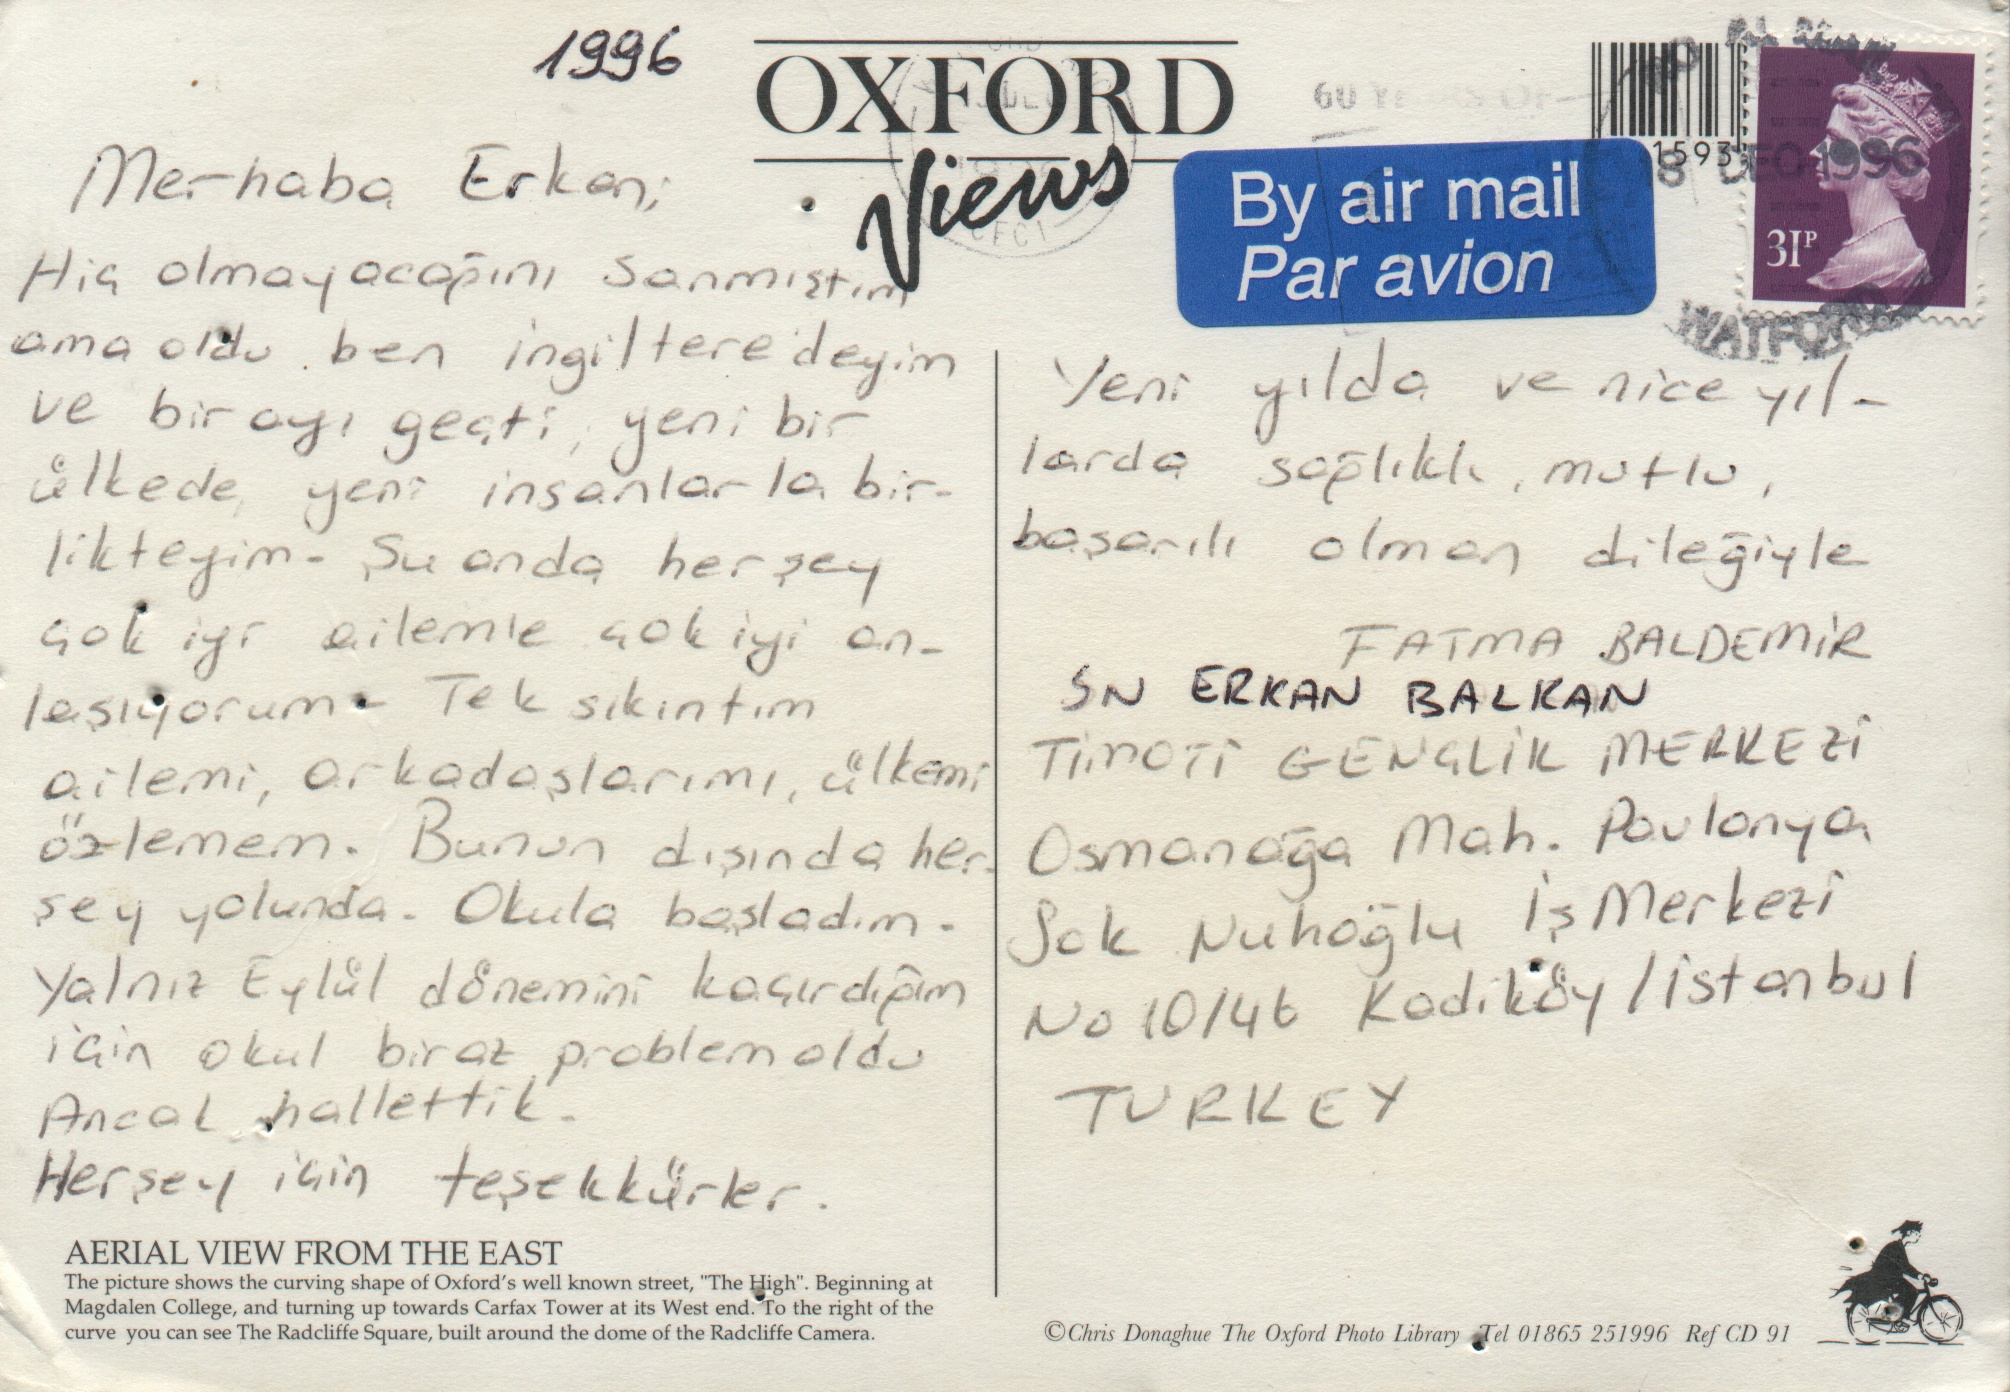 1996
OXFORD
Views
60 YEARS OF
By air mail
Par avion
1593
18 DEC 1996
31P
WATFORD
Merhaba Erkan;
Hiç olmayacağını sanmıştım
ama oldu. ben ingiltere'deyim
ve bir ayı geçti, yeni bir
ülkede, yeni insanlarla bir-
likteyim. Şu anda herşey
çok iyi ailemle çok iyi an-
laşıyorum. Tek sıkıntım
ailemi, arkadaşlarımı, ülkemi
özlemem. Bunun dışında her-
şey yolunda. Okula başladım.
Yalnız Eylül dönemini kaçırdığım
için okul biraz problem oldu
Ancak hallettik.
Herşey için teşekkürler.
Yeni yılda ve nice yıl-
larda sağlıklı, mutlu,
başarılı olman dileğiyle
FATMA BALDEMİR
SN ERKAN BALKAN
TİMOTİ GENÇLİK MERKEZİ
Osmanağa Mah. Pavlonya
Sok Nuhoğlu İş Merkezi
No 10/46 Kadıköy / İstanbul
TURKEY
AERIAL VIEW FROM THE EAST
The picture shows the curving shape of Oxford's well known street, "The High". Beginning at
Magdalen College, and turning up towards Carfax Tower at its West end. To the right of the
curve you can see The Radcliffe Square, built around the dome of the Radcliffe Camera.
©Chris Donaghue The Oxford Photo Library Tel 01865 251996 Ref CD 91